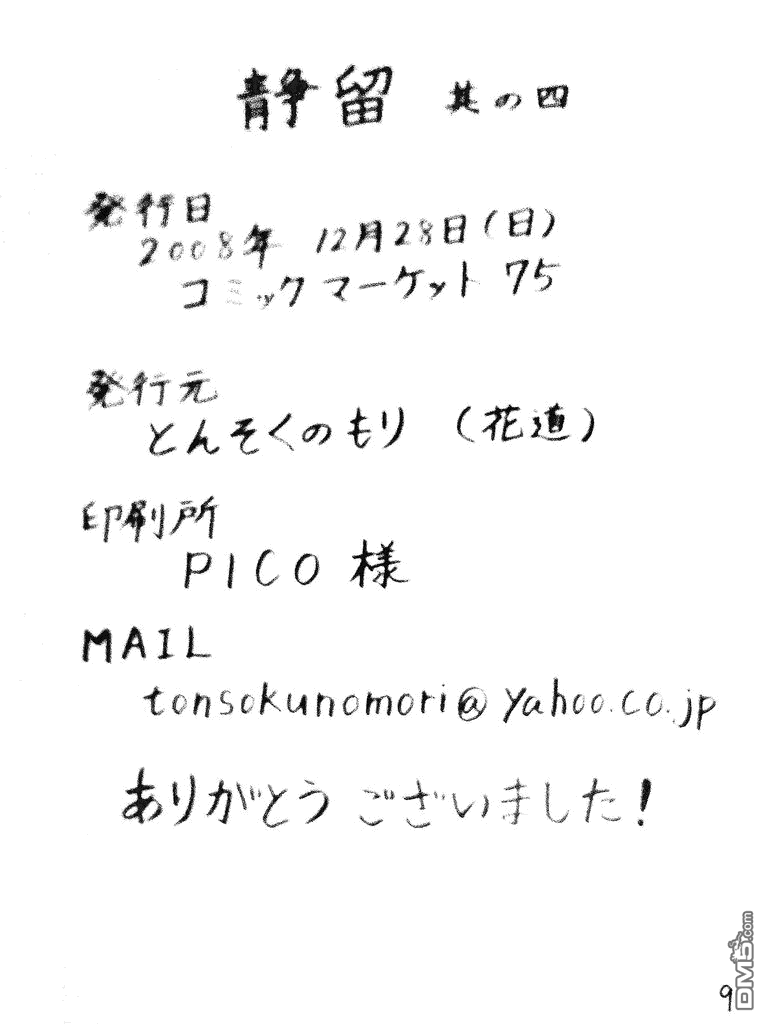 静留 其の四
発行日
2008年 12月28日(日)
コミックマーケット 75
発行元
とんそくのもり (花道)
印刷所
PICO 様
MAIL
tonsokunomori@yahoo.co.jp
ありがとう ございました!
9
DM5.com